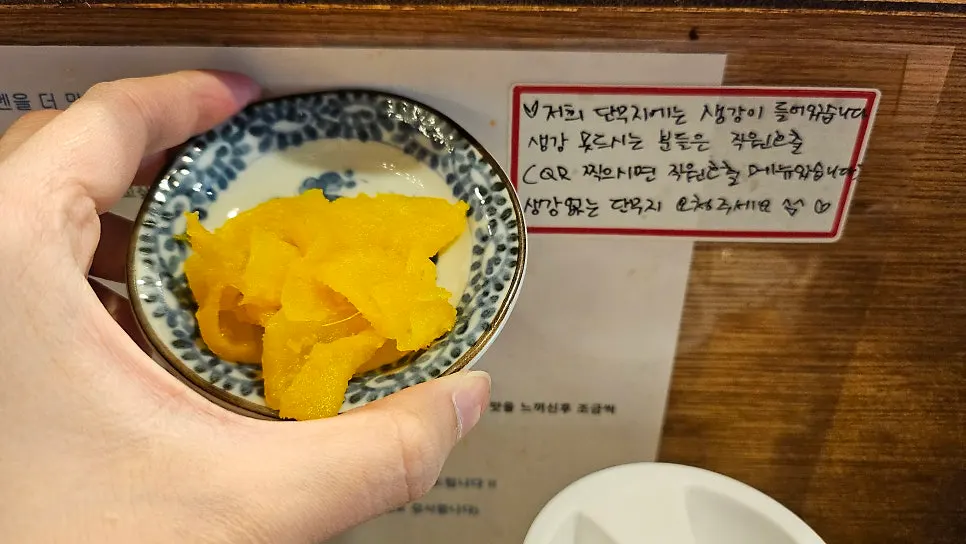 벤을 더
♡저희 단무지에는 생강이 들어있습니다
생강 못드시는 분들은 직원호출
(QR 찍으시면 직원호출 메뉴있습니다)
생강없는 단무지 요청주세요 ♡
맛을 느끼신후 조금씩
드립니다 !!